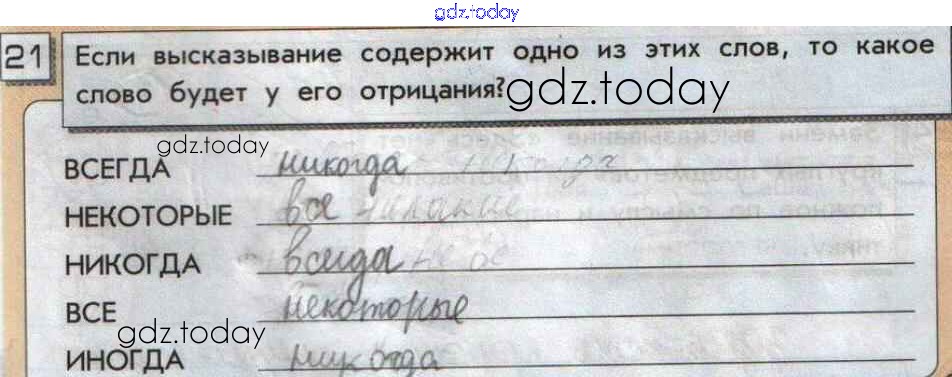 gdz.today
21 Если высказывание содержит одно из этих слов, то какое
слово будет у его отрицания? gdz.today
gdz.today
ВСЕГДА никогда
НЕКОТОРЫЕ все
НИКОГДА всегда
ВСЕ некоторые
gdz.today
ИНОГДА никогда